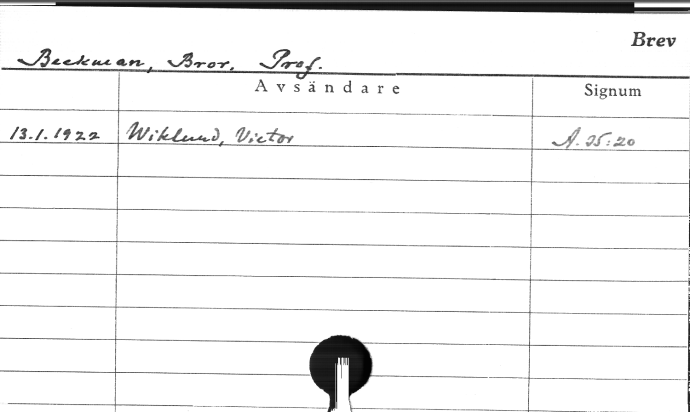 Brev
Beckman, Bror. Prof.
Avsändare Signum
13.1.1922 Wiklund, Victor A. 35:20